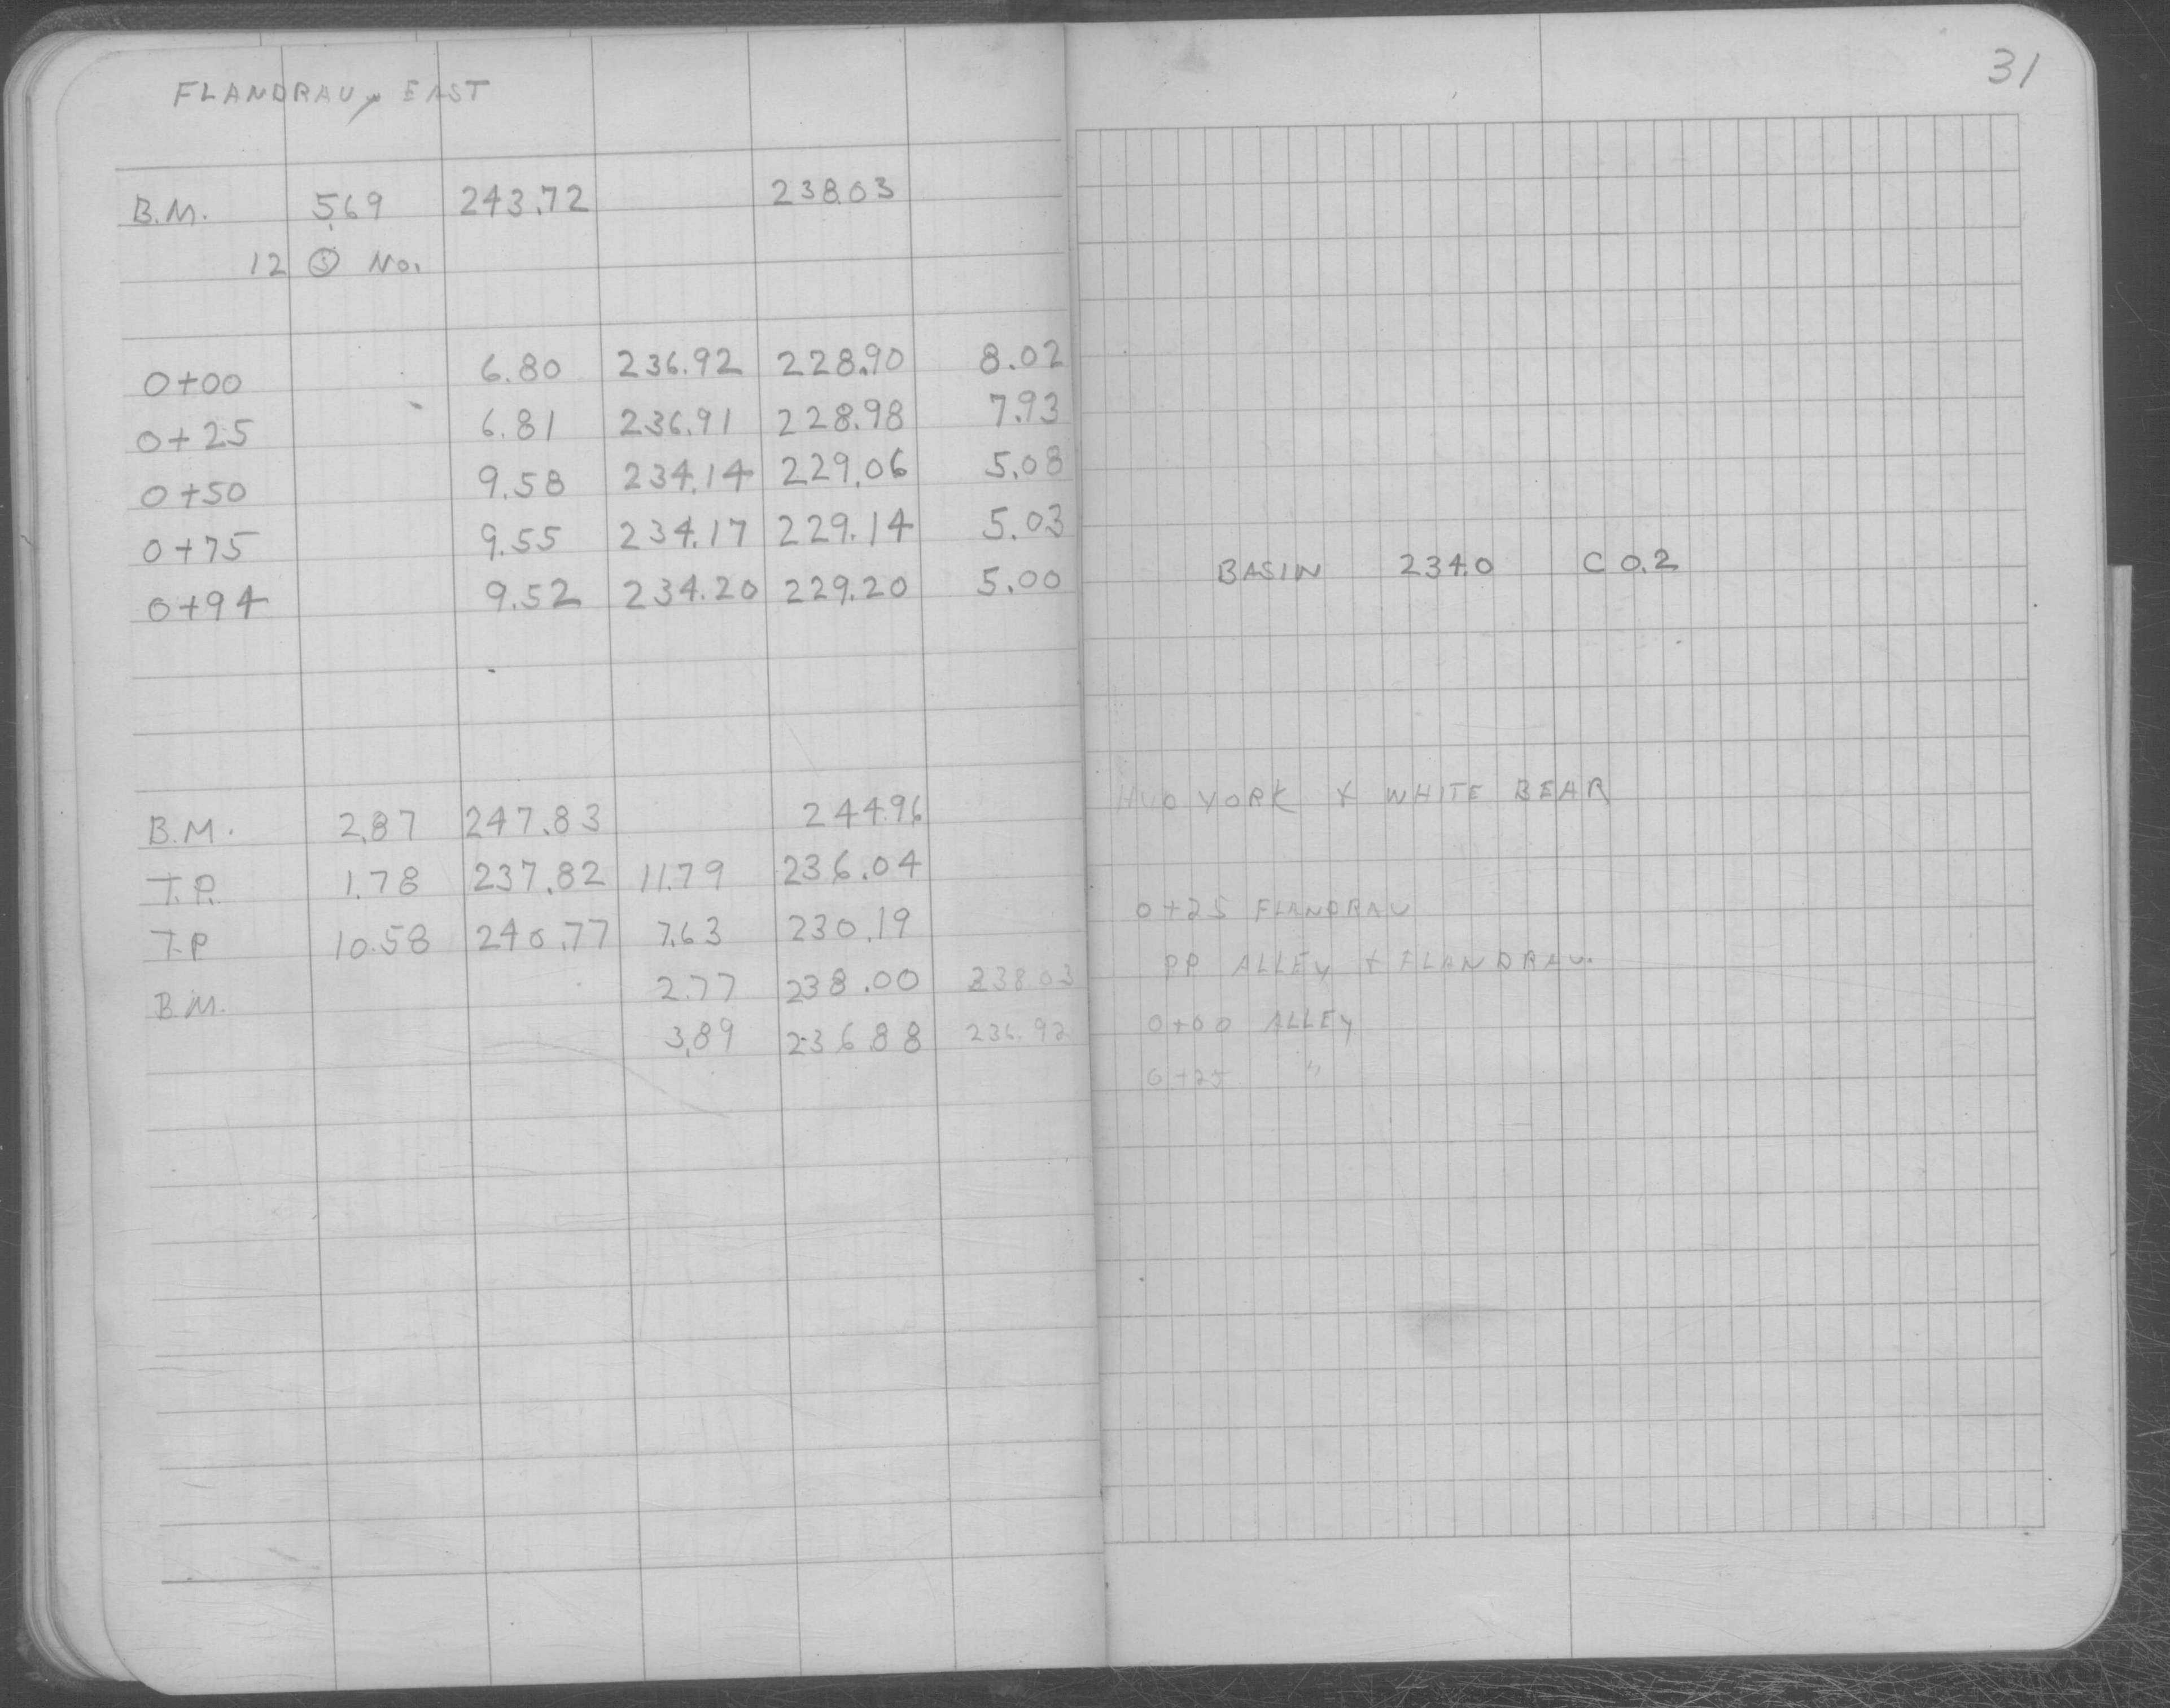 31
FLANDRAU, EAST
B.M. 5.69 243.72 238.03
12 ⑤ No.
0+00 6.80 236.92 228.90 8.02
0+25 6.81 236.91 228.98 7.93
0+50 9.58 234.14 229.06 5.08
0+75 9.55 234.17 229.14 5.03
0+94 9.52 234.20 229.20 5.00
BASIN 234.0 C 0.2
B.M. 2.87 247.83 244.96 HYD YORK & WHITE BEAR
T.P. 1.78 237.82 11.79 236.04 0+25 FLANDRAU
T.P 10.58 240.77 7.63 230.19 PP ALLEY & FLANDRAU.
B.M. 2.77 238.00 238.03 0+00 ALLEY
3.89 236.88 236.92 0+25 "